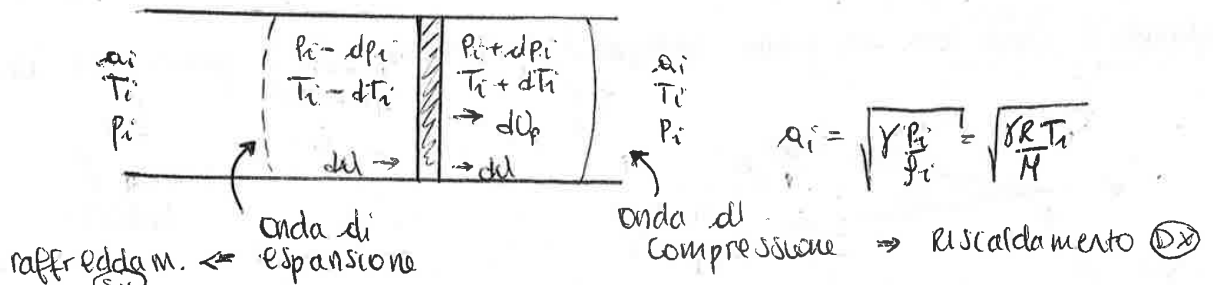 ai
Ti
pi
Pi - dpi
Ti - dTi
dU →
Pi + dpi
Ti + dTi
→ dUp
→ dU
ai
Ti
Pi
ai = √(γ Pi/ρi) = √(γR/M Ti)
onda di
espansione
raffreddam. ⇐
SX
onda di
compressione ⇒ Riscaldamento DX